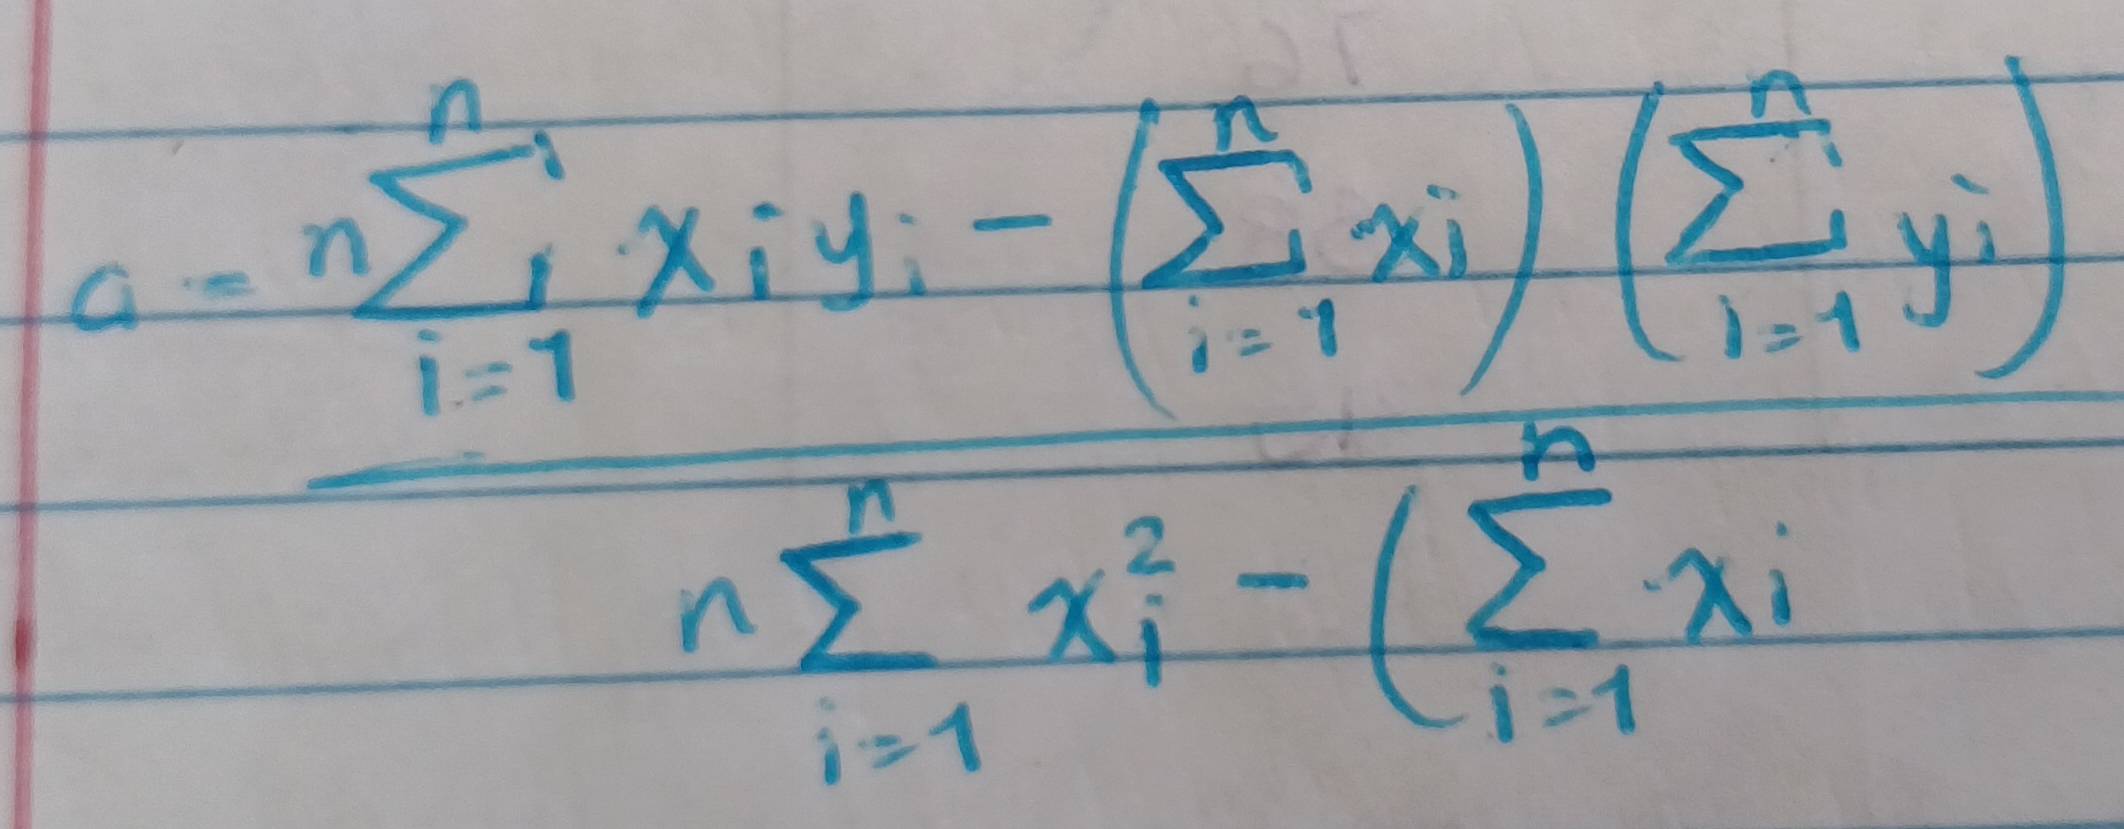 a = n∑_{i=1}^{n} x_i y_i - (∑_{i=1}^{n} x_i) (∑_{i=1}^{n} y_i)
n∑_{i=1}^{n} x_i^2 - (∑_{i=1}^{n} x_i